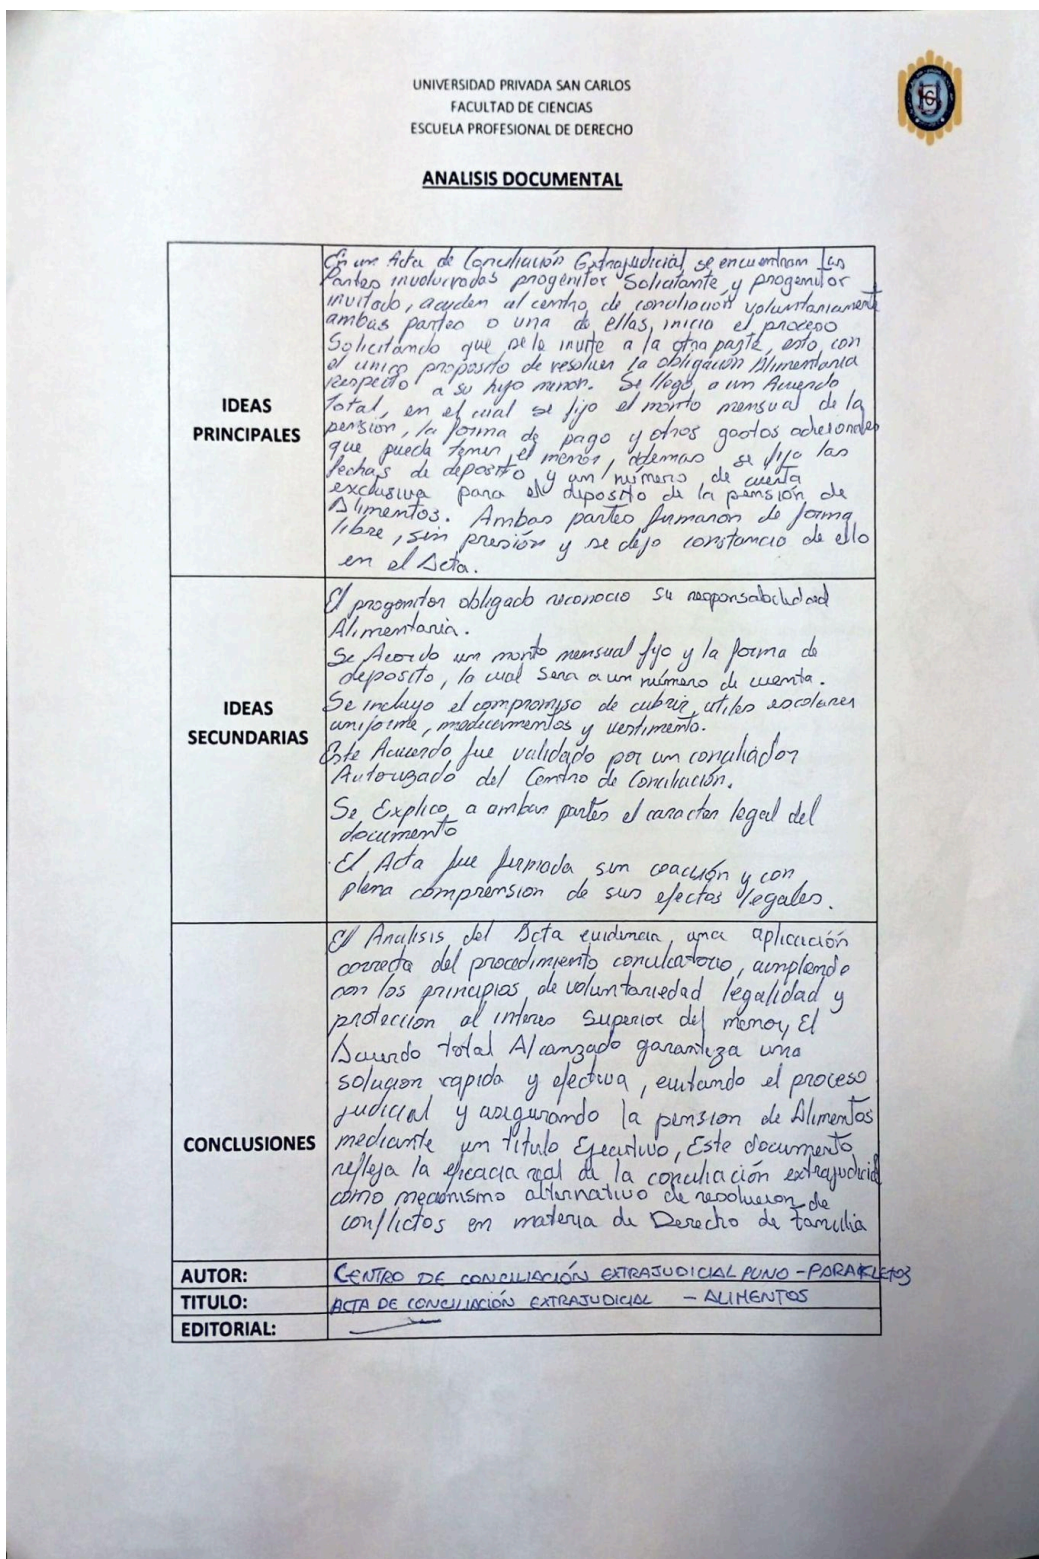 UNIVERSIDAD PRIVADA SAN CARLOS
FACULTAD DE CIENCIAS
ESCUELA PROFESIONAL DE DERECHO
ANALISIS DOCUMENTAL
IDEAS PRINCIPALES
En una Acta de Conciliación Extrajudicial se encuentran las
Partes involucradas progenitor Solicitante y progenitor
invitado, acuden al centro de conciliación voluntariamente
ambas partes o una de ellas, inicia el proceso
Solicitando que se le invite a la otra parte, esto, con
el unico proposito de resolver la obligación Alimentaria
respecto a su hijo menor. Se llego, a un Acuerdo
Total, en el cual se fijo el monto mensual de la
pension, la forma de pago y otros gastos adicionales
que pueda tener el menor, ademas se fijo las
fechas de deposito y un número de cuenta
exclusiva para el deposito de la pensión de
Alimentos. Ambas partes firmaron de forma
libre, sin presión y se dejo constancia de ello
en el Acta.
IDEAS SECUNDARIAS
El progenitor obligado reconocio su responsabilidad
Alimentaria.
Se Acordo un monto mensual fijo y la forma de
deposito, la cual sera a un número de cuenta.
Se incluyo el compromiso de cubrir, utiles escolares
uniforme, medicamentos y vestimenta.
Este Acuerdo fue validado por un conciliador
Autorizado del Centro de Conciliación.
Se Explico a ambas partes el caracter legal del
documento
El Acta fue firmada sin coacción y con
plena comprension de sus efectos legales.
CONCLUSIONES
El Analisis del Acta evidencia una aplicación
correcta del procedimiento conciliatorio, cumpliendo
con los principios de voluntariedad legalidad y
protección al interes Superior del menor, El
Acuerdo total Alcanzado garantiza una
solucion rapida y efectiva, evitando el proceso
judicial y asegurando la pension de Alimentos
mediante un titulo Ejecutivo, Este documento
refleja la eficacia real de la conciliación extrajudicial
como mecanismo alternativo de resolucion de
conflictos en materia de Derecho de familia
AUTOR: CENTRO DE CONCILIACIÓN EXTRAJUDICIAL PUNO - PARAKLETOS
TITULO: ACTA DE CONCILIACIÓN EXTRAJUDICIAL - ALIMENTOS
EDITORIAL: